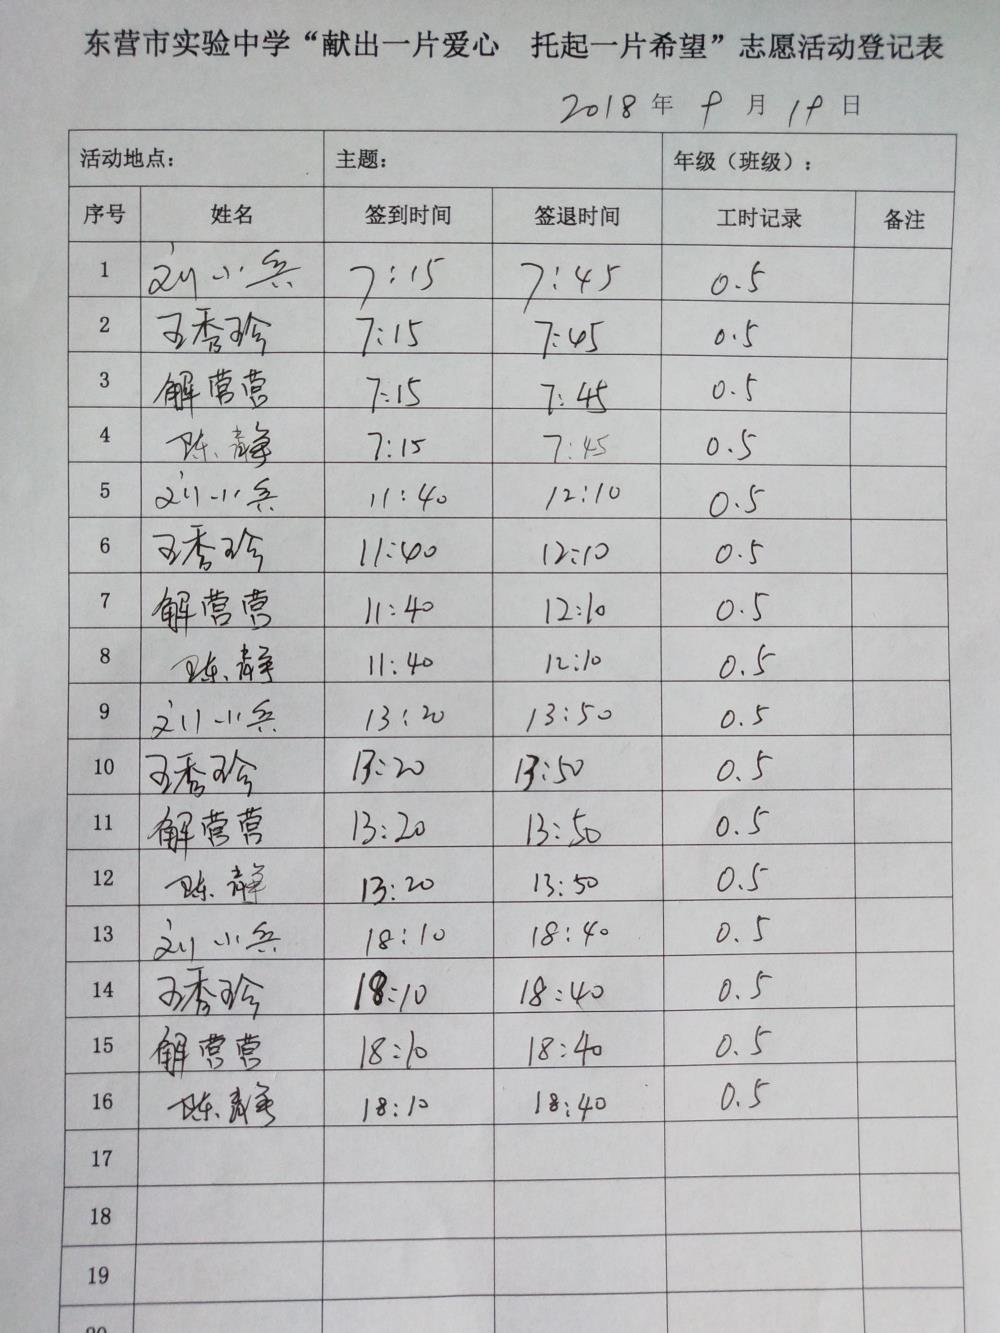 东营市实验中学“献出一片爱心 托起一片希望”志愿活动登记表
2018 年 9 月 19 日
活动地点: 主题: 年级（班级）:
序号 姓名 签到时间 签退时间 工时记录 备注
1 刘小兵 7:15 7:45 0.5
2 王秀珍 7:15 7:45 0.5
3 解营营 7:15 7:45 0.5
4 陈静 7:15 7:45 0.5
5 刘小兵 11:40 12:10 0.5
6 王秀珍 11:40 12:10 0.5
7 解营营 11:40 12:10 0.5
8 陈静 11:40 12:10 0.5
9 刘小兵 13:20 13:50 0.5
10 王秀珍 13:20 13:50 0.5
11 解营营 13:20 13:50 0.5
12 陈静 13:20 13:50 0.5
13 刘小兵 18:10 18:40 0.5
14 王秀珍 18:10 18:40 0.5
15 解营营 18:10 18:40 0.5
16 陈静 18:10 18:40 0.5
17
18
19
20